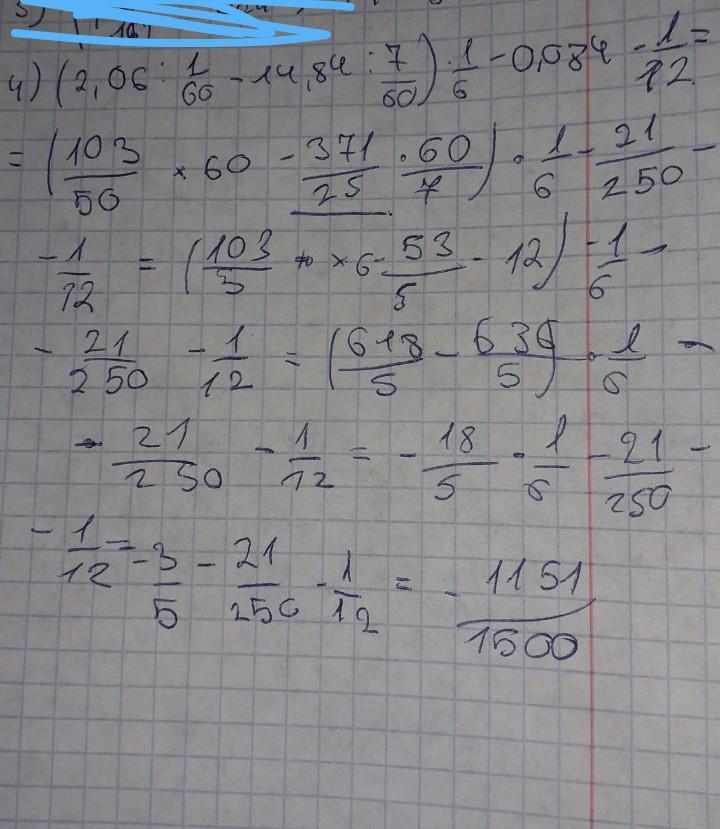 4) (2,06 : 1/60 - 14,84 : 7/60) · 1/6 - 0,084 - 1/12 =
= (103/50 × 60 - 371/25 · 60/7) · 1/6 - 21/250 -
- 1/12 = (103/5 × 6 - 53/5 - 12) - 1/6 -
- 21/250 - 1/12 = (618/5 - 636/5) · 1/6 -
- 21/250 - 1/12 = - 18/5 · 1/6 - 21/250 -
- 1/12 = - 3/5 - 21/250 - 1/12 = - 1151/1500